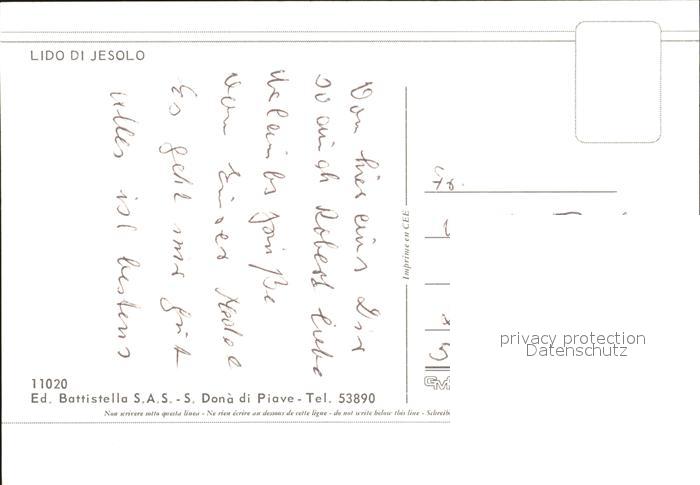 LIDO DI JESOLO
Von hier aus Dir
so auch Robert liebe
Urlaubsgrüße
von Eurer
Es geht mir gut
alles ist bestens
Imprimé en CEE
privacy protection
Datenschutz
11020
Ed. Battistella S.A.S. - S. Donà di Piave - Tel. 53890
Non scrivere sotto questa linea - Ne rien écrire au dessous de cette ligne - do not write below this line - Schreib